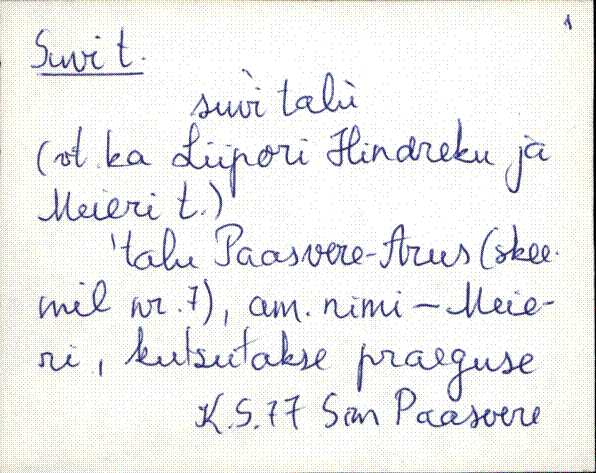 1
Suvi t.
suvì talù
(vt. ka Liipori Hindreku ja
Meieri t.)
'talu Paasvere-Arus (skee-
mil nr. 7), am. nimi – Meie-
ri, kutsutakse praeguse
K.S.77 Sim Paasvere